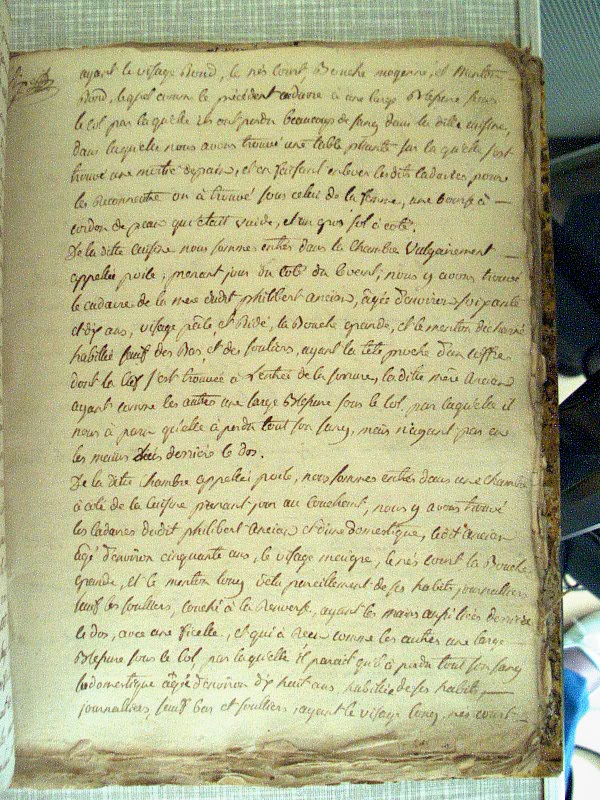 ayant le visage Rond, le nés court Bouche moyenne, et Menton
Rond, lequel comme le précédent cadavre a une large Blessure sous
le col par laquelle ils ont perdu beaucoup de sang dans la ditte cuisine,
dans laquelle nous avons trouvé une table plianté sur laquelle s'est
trouvé une miche de pain, et en faisant enlever lesdits cadavres pour
les Reconnoitre on a trouvé sous celui de la femme, une Bourse à
cordon de peau qui était vuide, et un gros sol à coté.
De la ditte Cuisine nous sommes entrés dans la Chambre Vulgairement
appellée poile, prenant jour du coté du Levent, nous y avons trouvé
le cadavre de la mere dudit philbert ancian, âgée d'environ soixante
et dix ans, visage pâle et Ridé, la Bouche grande, et le menton décharné
habillée sauf des Bas, et des souliers, ayant la tête proche d'un coffre
dont la clef s'est trouvée à l'entrée de la serrure, la ditte mère ancian
ayant comme les autres une large Blessure sous le Col, par laquelle il
nous à paru qu'elle à perdu tout son sang, mais n'ayant pas eu
les mains liées derrière le dos.
De la ditte chambre appellée poile, nous sommes entrés dans une chambre
à coté de la Cuisine prenant jour au couchant, nous y avons trouvé
les cadavres dudit philibert ancian et d'une domestique, ledit ancian
âgé d'environ cinquante ans, le visage maigre, le nés court la Bouche
grande, et le menton long vétu pareillement de ses habits journalliers
sauf les souliers, couché à la Renverse, ayant les mains aussi liées derrière
le dos, avec une ficelle, et qui a Reçu comme les autres une large
Blessure sous le Col, par laquelle il parait qu'il à perdu tout son sang
la domestique âgée d'environ dix huit ans, habillée de ses habits
journalliers, sauff bas et souliers, ayant le visage long, nés court